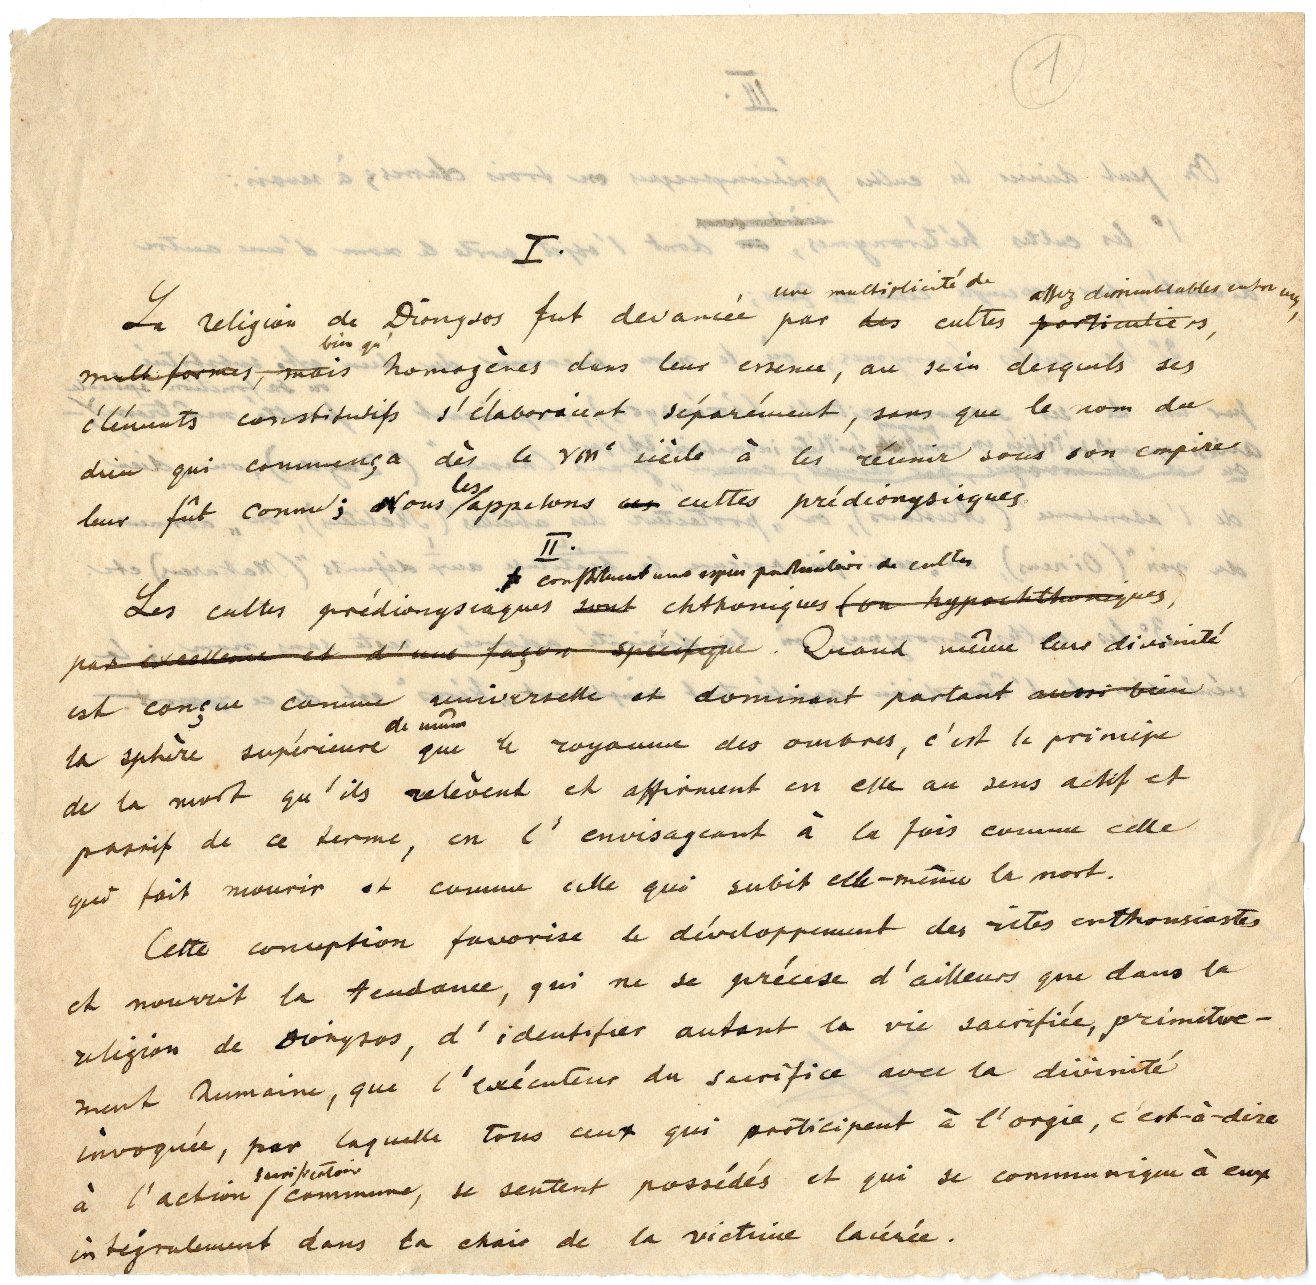 1
I.
une multiplicité de assez dissemblables entre eux,
La religion de Dionysos fut devancée par des cultes particuliers,
bien qu'
multiformes, mais homogènes dans leur essence, au sein desquels ses
éléments constitutifs s'élaboraient séparément, sans que le nom du
dieu qui commença dès le VIIIe siècle à les réunir sous son empire
les
leur fût connu; Nous appelons ces cultes prédionysiaques.
II.
constituent une espèce particulière de cultes
Les cultes prédionysiaques sont chthoniques (ou hypochthoniques,
par excellence et d'une façon spécifique. Quand même leur divinité
est conçue comme universelle et dominant partant aussi bien
de même
la sphère supérieure que le royaume des ombres, c'est le principe
de la mort qu'ils relèvent et affirment en elle au sens actif et
passif de ce terme, en l'envisageant à la fois comme celle
qui fait mourir et comme celle qui subit elle-même la mort.
Cette conception favorise le développement des rites enthousiastes
et nourrit la tendance, qui ne se précise d'ailleurs que dans la
religion de Dionysos, d'identifier autant la vie sacrifiée, primitive-
ment humaine, que l'exécuteur du sacrifice avec la divinité
invoquée, par laquelle tous ceux qui participent à l'orgie, c'est-à-dire
sacrificatoire
à l'action commune, se sentent possédés et qui se communique à eux
intégralement dans la chair de la victime lacérée.